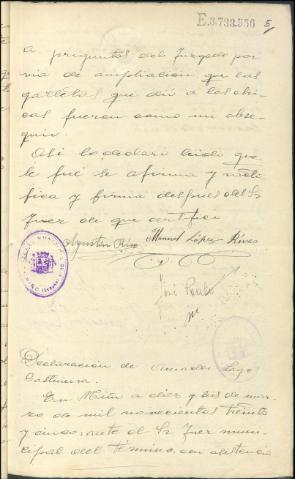 E.3.793.356 5
a preguntas del Juzgado por
via de ampliación que las
galletas que dió a las chi-
cas fueron como un obse-
quio.
Asi lo declaró leido que
le fué se afirma y rati-
fica y firma despues del Sr
Juez de que certifico
Agustin Rios Manuel López Rivas
José
Declaración de Lago
En Miño a diez y seis de mar-
zo de mil novecientos treinta
y cinco, ante el Sr Juez muni-
cipal del término, con asistencia